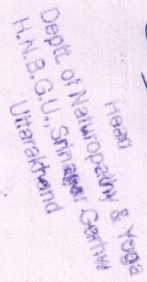 Head
Deptt. of Naturopathy & Yoga
H.N.B.G.U., Srinagar Garhw
Uttarakhand